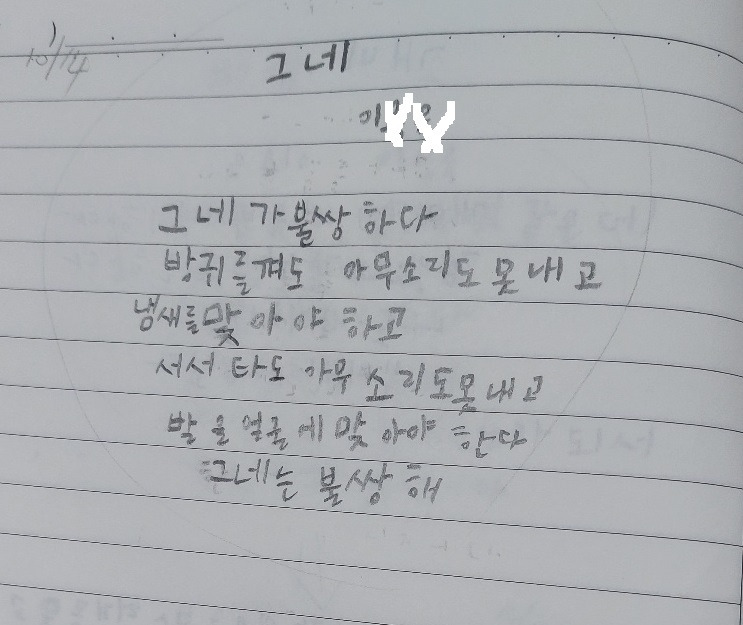 10/14
그네
그네가 불쌍하다
방귀를 껴도 아무소리도 못 내고
냄새를 맞아야 하고
서서 타도 가무 소리도 못 내고
발을 얼굴에 맞아야 한다
그네는 불쌍해